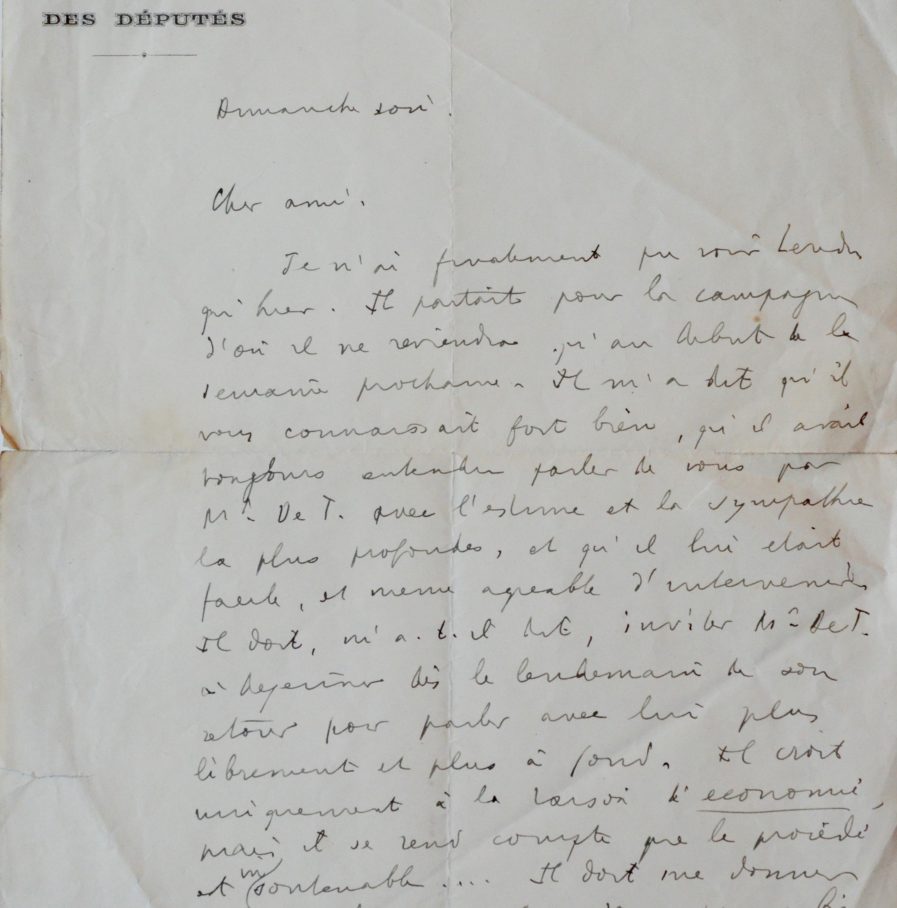 DES DÉPUTÉS
Dimanche soir.
Cher ami.
Je n'ai finalement pu voir
qu'hier. Il partait pour la campagne
d'où il ne reviendra qu'au début de la
semaine prochaine. Il m'a dit qu'il
vous connaissait fort bien, qu'il avait
toujours entendu parler de vous par
Mr De T. avec l'estime et la sympathie
la plus profondes, et qu'il lui etait
facile, et meme agreable d'intervenir
Il doit, m'a-t-il dit, inviter Mr De T.
à dejeuner dès le lendemain de son
retour pour parler avec lui plus
librement et plus à fond. Il croit
uniquement à la raison d'economie,
mais il se rend compte que le procédé
est insoutenable.... Il doit me donner